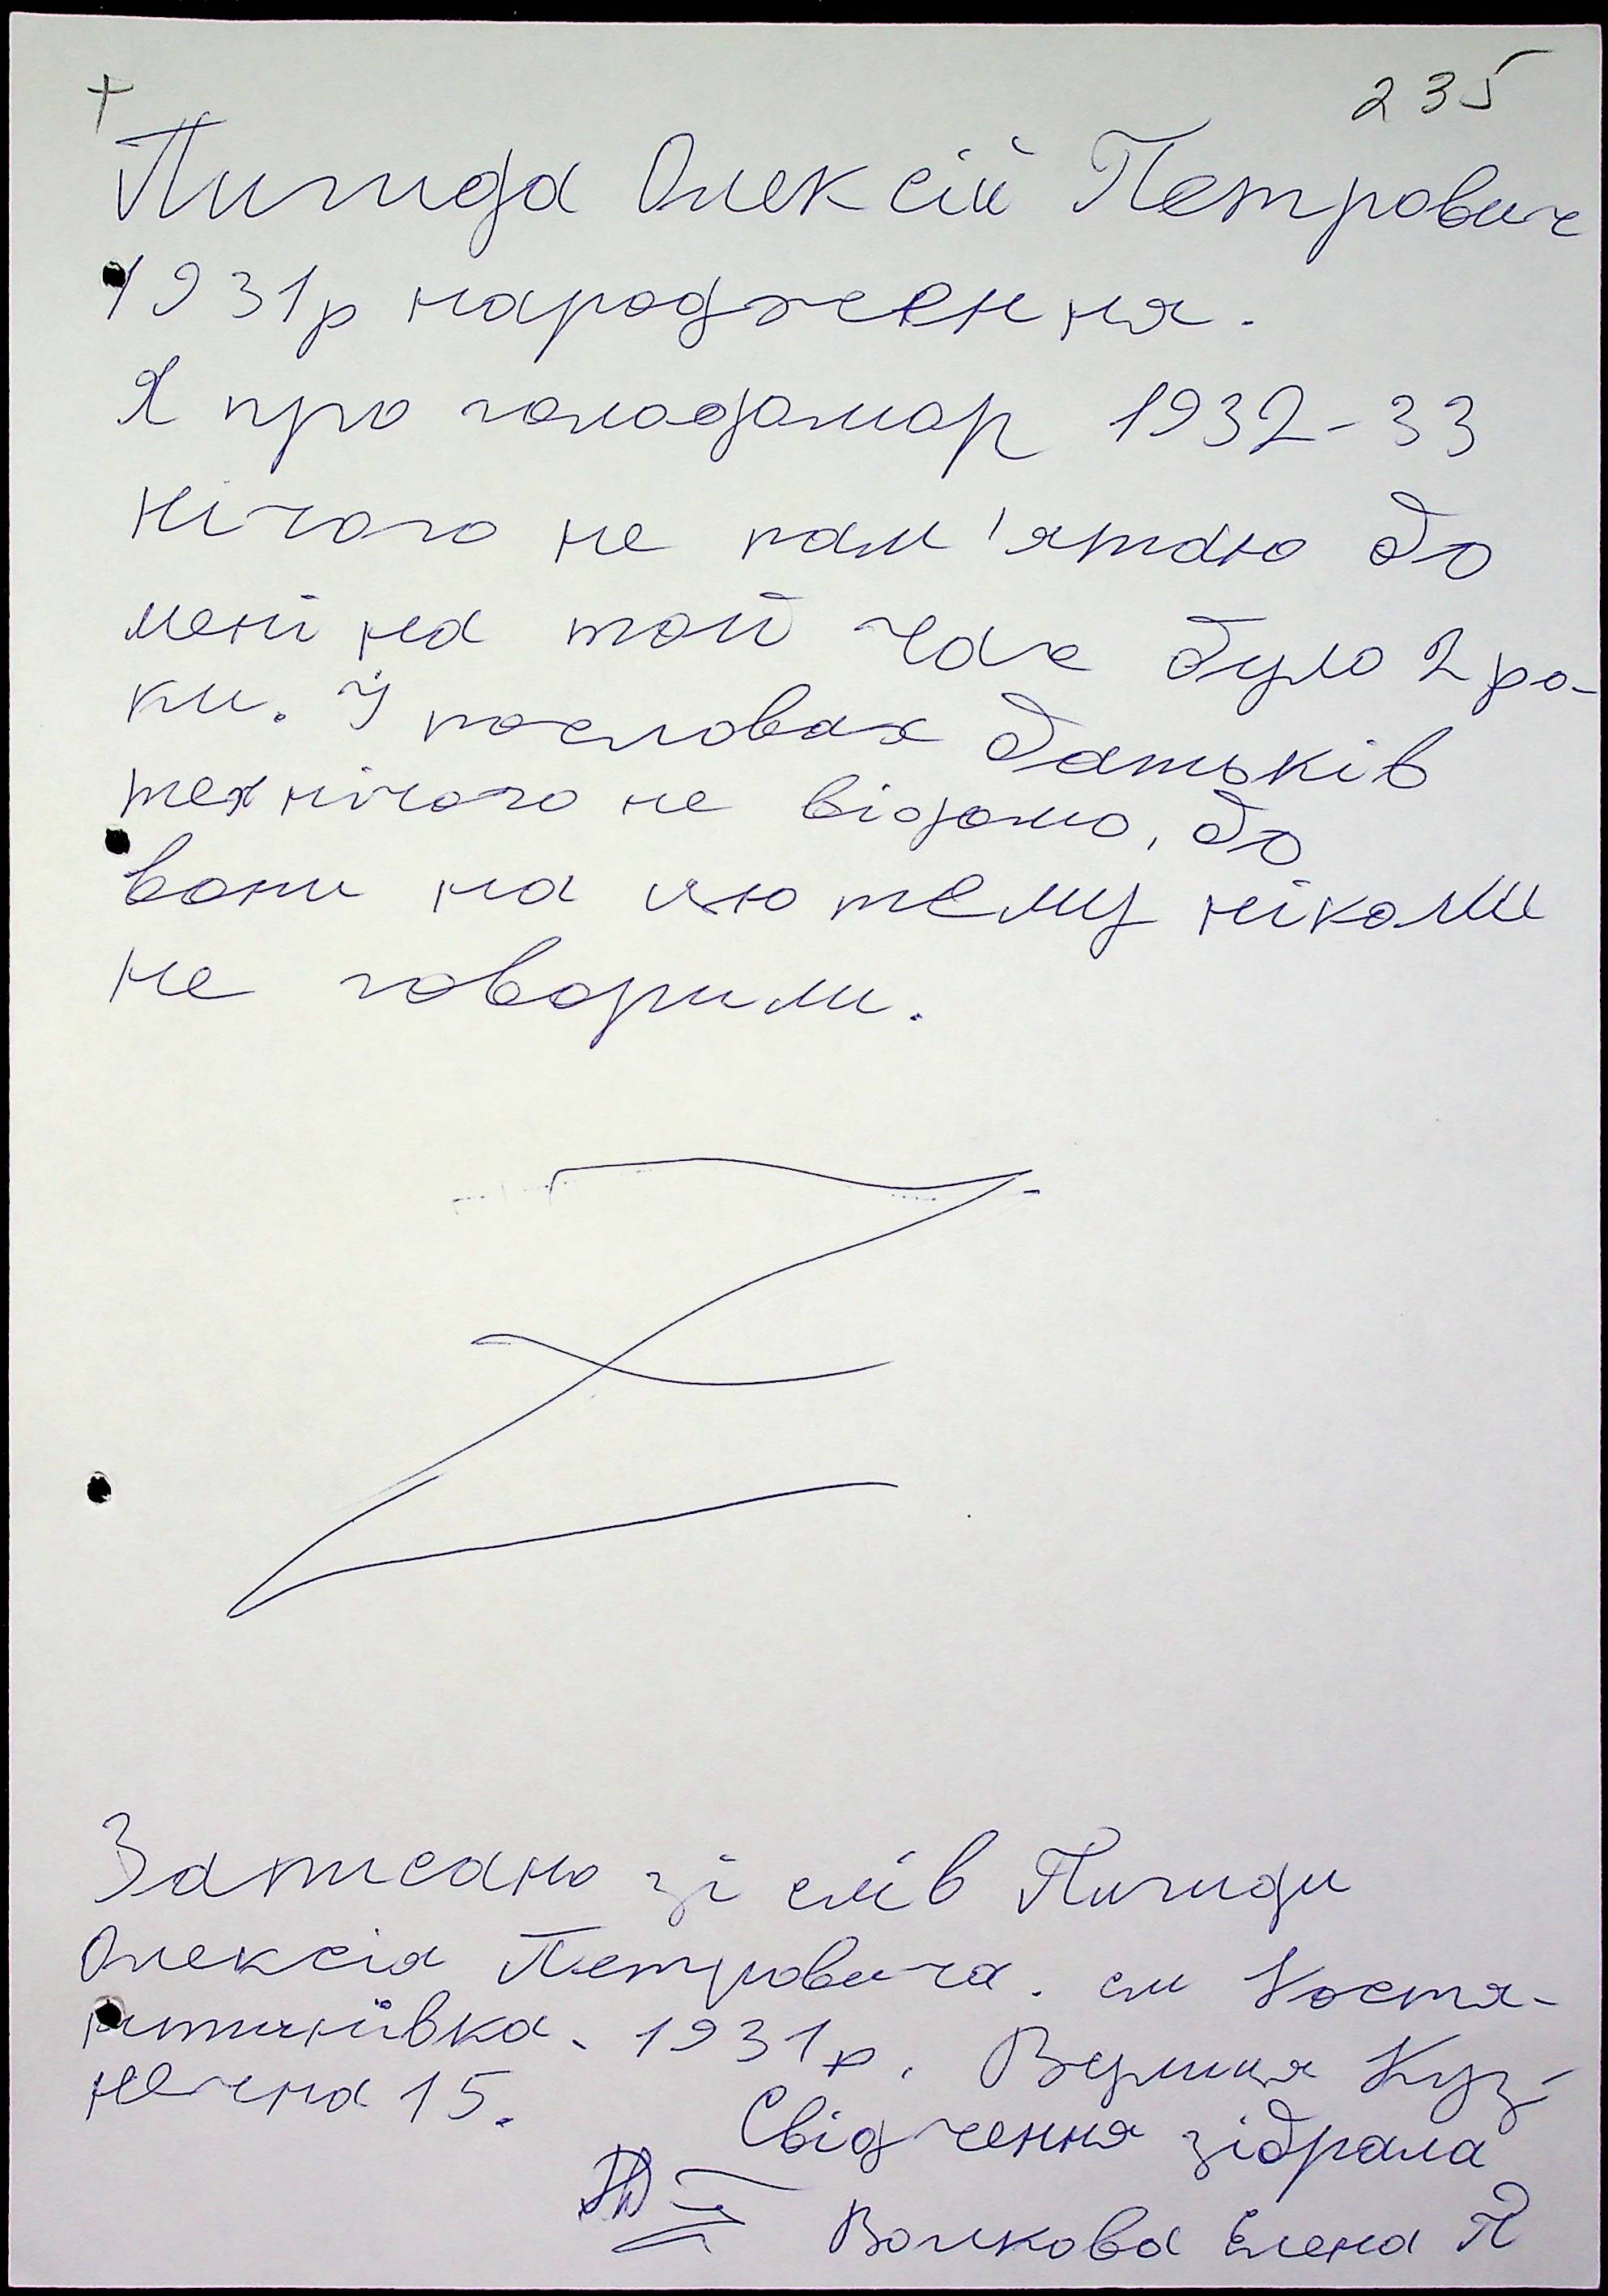 235
Пигида Олексій Петрович
1931р народження.
Я про голодомор 1932-33
нічого не пам'ятаю бо
мені на той час було 2 ро-
ки. У пословах батьків
теж нічого не відомо, бо
вони на цю тему ніколи
не говорили.
Записано зі слів Пигиди
Олексія Петровича. см Костя-
нтинівка. 1931р. Вулиця Куз-
нечна 15.
Свідчення зібрала
Волкова Елена П